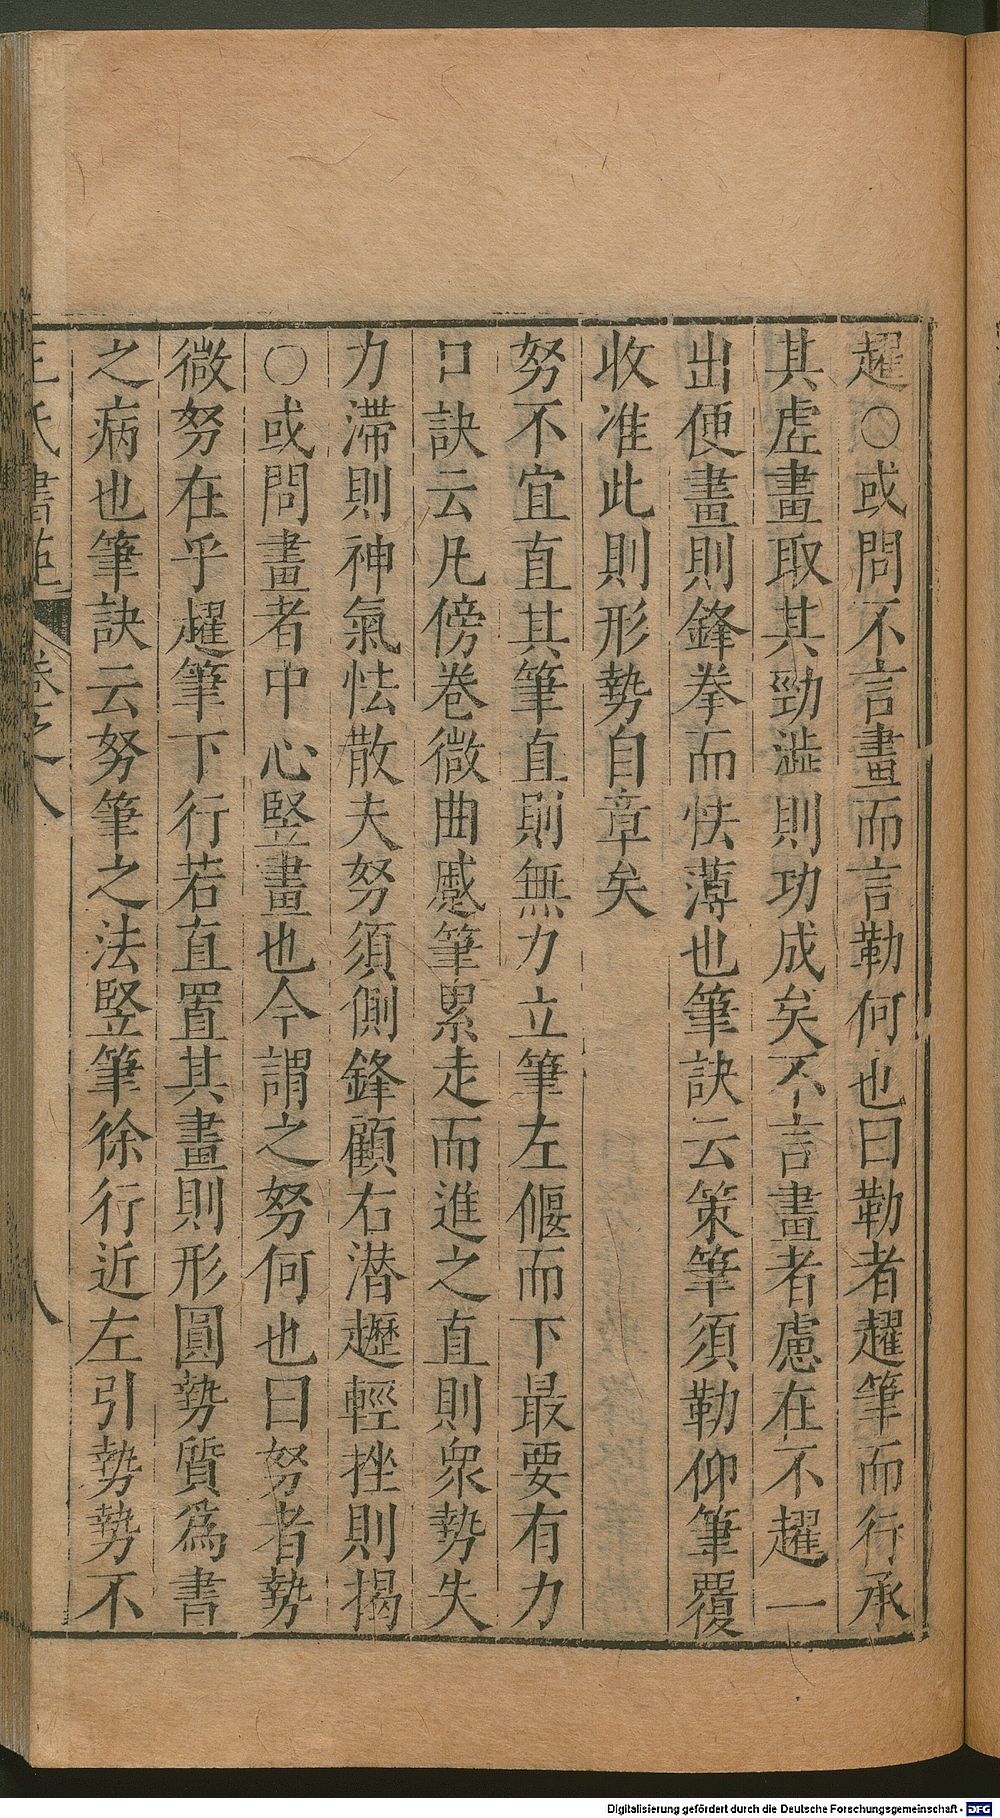 趯○或問不言畫而言勒何也曰勒者趯筆而行承
其虛畫取其勁澁則功成矣不言畫者慮在不趯一
出便畫則鋒拳而怯薄也筆訣云策筆須勒仰筆覆
收准此則形勢自章矣
努不宜直其筆直則無力立筆左偃而下最要有力
口訣云凡傍卷微曲蹙筆累走而進之直則衆勢失
力滯則神氣怯散夫努須側鋒顧右潜趯輕挫則揭
○或問畫者中心竪畫也今謂之努何也曰努者勢
微努在乎趯筆下行若直置其畫則形圓勢質爲書
之病也筆訣云努筆之法竪筆徐行近左引勢勢不
王氏書苑 卷之八 八
Digitalisierung gefördert durch die Deutsche Forschungsgemeinschaft - DFG